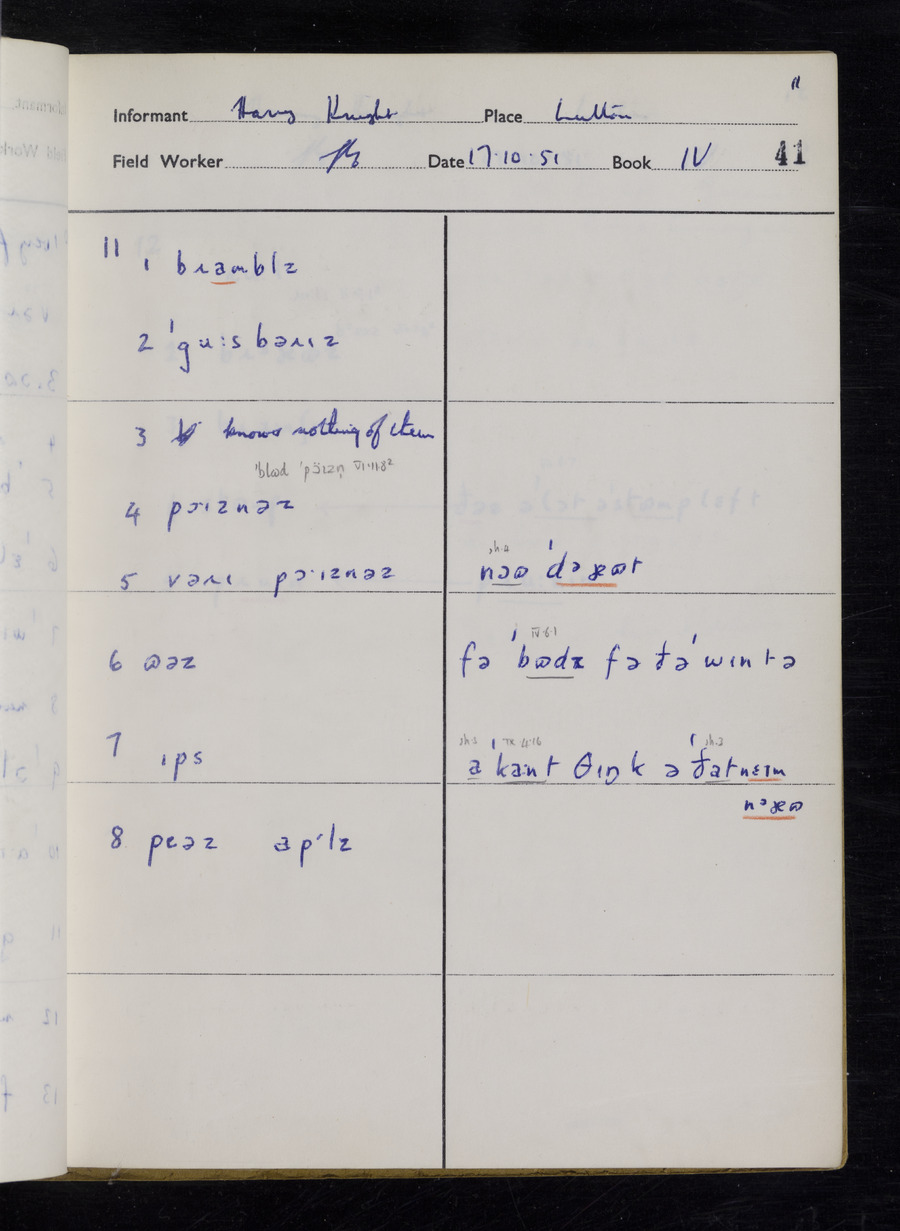 11
Informant Harry Knight Place Lutton
Field Worker Date 17·10·51 Book IV 41
11
1 bɹambḷz
2 ˈgu:sbəɹɪz
3 knows nothing of them
ˈblɷd ˈpɔ̈ɪzṇ VI·11·8²
4 pɔ·ɪznəz
5 vəɹɪ pɔ·ɪznəz
sh.4
nəɷ ˈdəʁɷt
6 ɷəz
IV·6·1
fə ˈbɷdz fə ðəˈwɪntə
7 ɪps
sh.3
a ˈka:nt θɪŋk ə ˈðat nɛɪm
nəɷ
8 peəz apˈlz